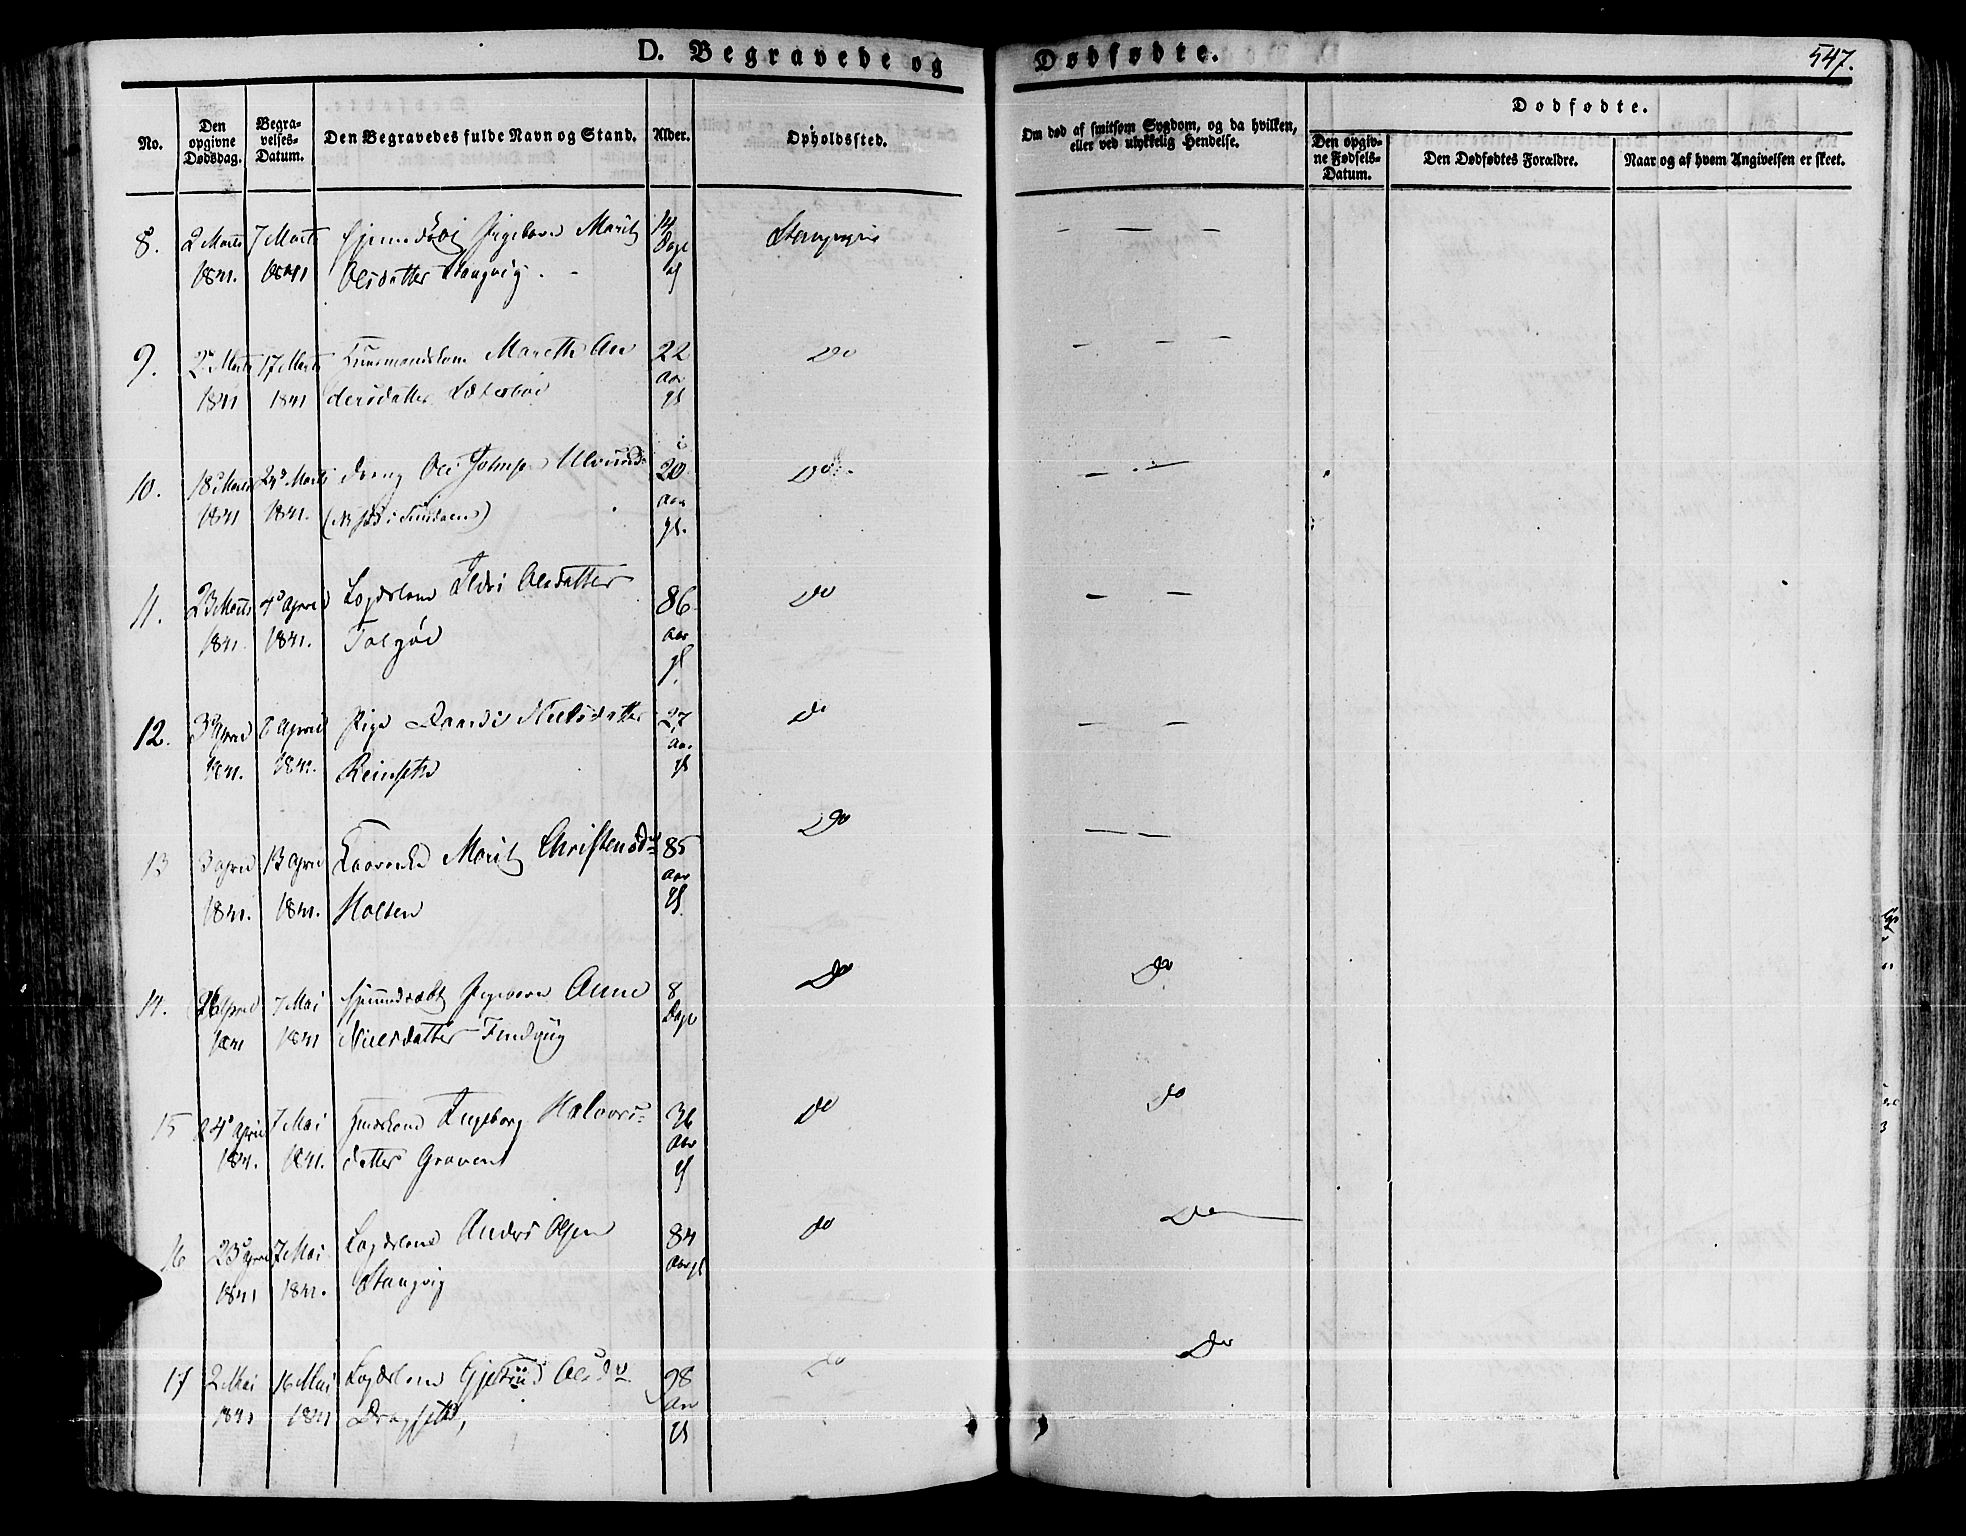 D. Begravede og Dødfødte.
547.
No.
Den opgivne Dødsdag.
Begravelses-Datum.
Den Begravedes fulde Navn og Stand.
Alder.
Opholdssted.
Om død af smitsom Sygdom, og da hvilken, eller ved ulykkelig Hendelse.
Dødfødte.
Den opgivne Fødsels-Datum.
Den Dødfødtes Forældre.
Naar og af hvem Angivelsen er skeet.
8. 2 Marts 7 Marts Pigebarn Marit 14 Stangvig — — —
1841. 1841 Olsdatter Stangvig. Dage
9. 2 Marts 17 Marts Marith An 22 Do — — —
1841 1841 dersdatter Aar
gl
10. 18 Marts 24 Marts Dreng Ole Johns. Ulvund 20 Do — — —
1841 1841. Aar
gl.
11. 23 Marts 4 April Lægdslem Ildri Olsdatter 86 Do — —
1841. 1841. Talgøe Aar
gl.
12. 3 April 6 April Pige Randi Nielsdatter 27 Do — —
1841. 1841. Reinsett Aar
gl
13 3 April 13 April Marit Christensd 85 Do — —
1841. 1841. Holten Aar
gl.
14. 26 April 7 Mai Pigebarn Anne 8 Do Do
1841 1841 Nielsdatter Dage
15 24 April 7 Mai Ingeborg Halvors= 36 Do Do
1841. 1841. datter Graven Aar
gl
16 23 April 7 Mai Lægdslem Anders Olsen 84 Do Do
1841 1841. Stangvig Aar gl
17 2 Mai 16 Mai Lægdslem Gjertrud Olsd 98 Do Do
1841 1841 Dragsett, Aar
gl